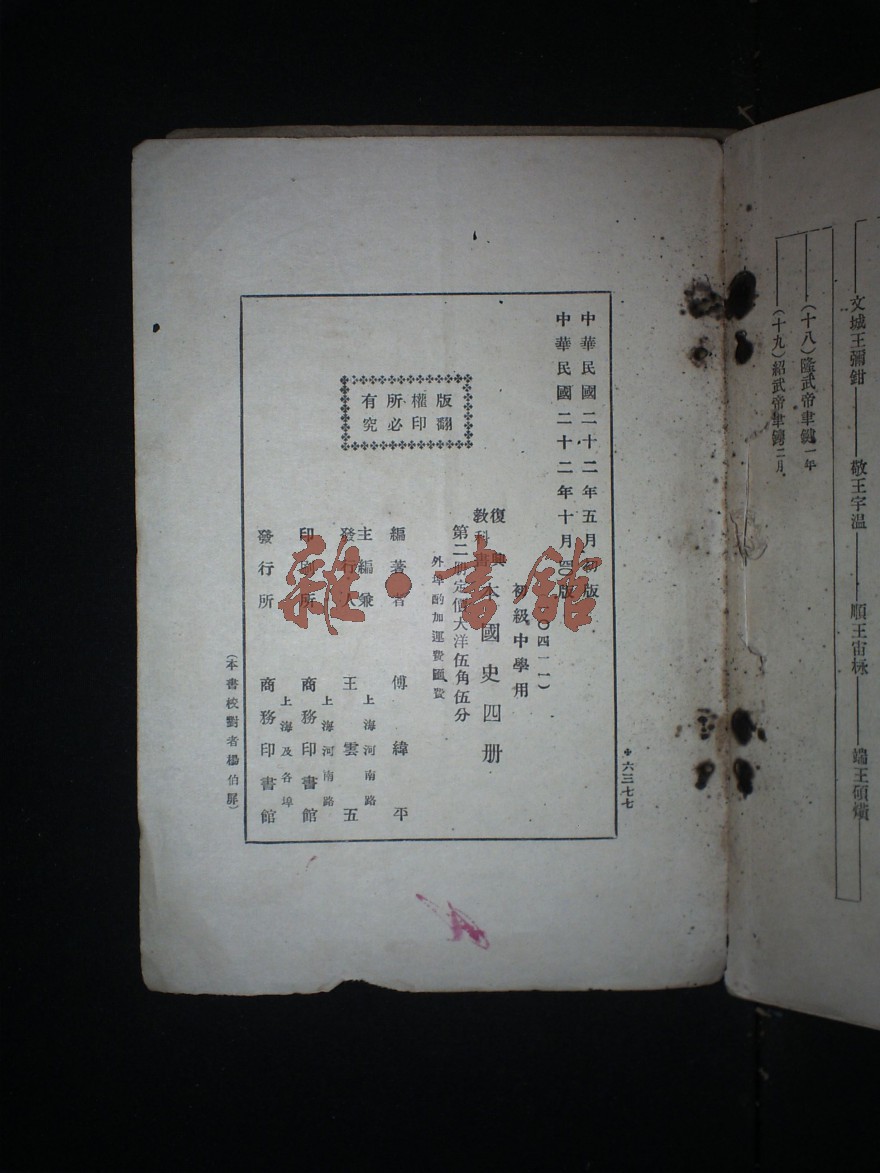 文城王彌鉗 敬王宇温 順王宙栐 端王碩熿
(十八)隆武帝聿鍵一年
(十九)紹武帝聿鐭二月
六三七七
中華民國二十二年五月初版
中華民國二十二年十月 版
〇四一一)
初級中學用
復興教科書 本國史四册
第二册定價大洋伍角伍分
外埠酌加運費匯費
版權所有
翻印必究
編著者 傅緯平
主編兼發行人 王雲五
上海河南路
印刷所 商務印書館
上海河南路
發行所 商務印書館
上海及各埠
(本書校對者楊伯屏)
雜·書館